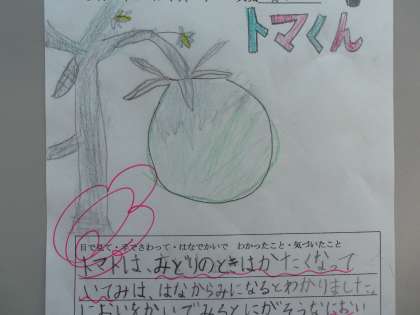 トマくん
目で見て・手でさわって・はなでかいで　わかったこと・気づいたこと
トマトは、みどりのときはかたくなって
いてみは、はなからみになるとわかりました。
においをかいでみるとにがそうなにおい